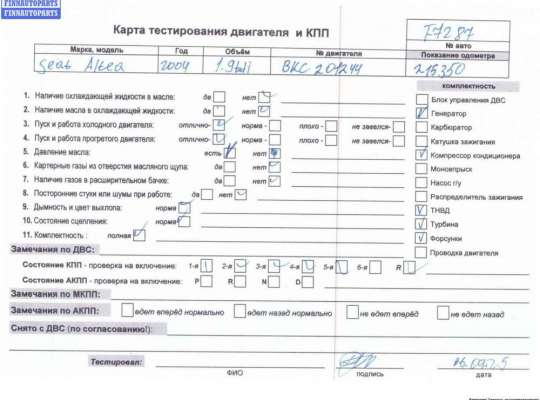 FINNAUTOPARTS
FINNAUTOPARTS
Карта тестирования двигателя и КПП
T7287
№ авто
Марка, модель Год Объём № двигателя Показание одометра
Seat Altea 2004 1.9tdi BKC 201244 215350
комплектность
1. Наличие охлаждающей жидкости в масле: да нет
Блок управления ДВС
2. Наличие масла в охлаждающей жидкости: да нет
Генератор
3. Пуск и работа холодного двигателя: отлично- норма - плохо - не завелся-
Карбюратор
4. Пуск и работа прогретого двигателя: отлично- норма - плохо - не завелся-
Катушка зажигания
5. Давление масла: есть нет
Компрессор кондиционера
6. Картерные газы из отверстия масляного щупа: да нет
Моновпрыск
7. Наличие газов в расширительном бачке: да нет
Насос г/у
8. Посторонние стуки или шумы при работе: да нет
Распределитель зажигания
9. Дымность и цвет выхлопа: норма
ТНВД
10. Состояние сцепления: норма
Турбина
11. Комплектность : полная
Форсунки
Замечания по ДВС:
Проводка двигателя
Состояние КПП - проверка на включение: 1-я 2-я 3-я 4-я 5-я 6-я R
Состояние АКПП - проверка на включение: P R N D
Замечания по МКПП:
Замечания по АКПП: едет вперёд нормально едет назад нормально не едет вперёд не едет назад
Снято с ДВС (по согласованию!):
Тестировал:
ФИО подпись дата